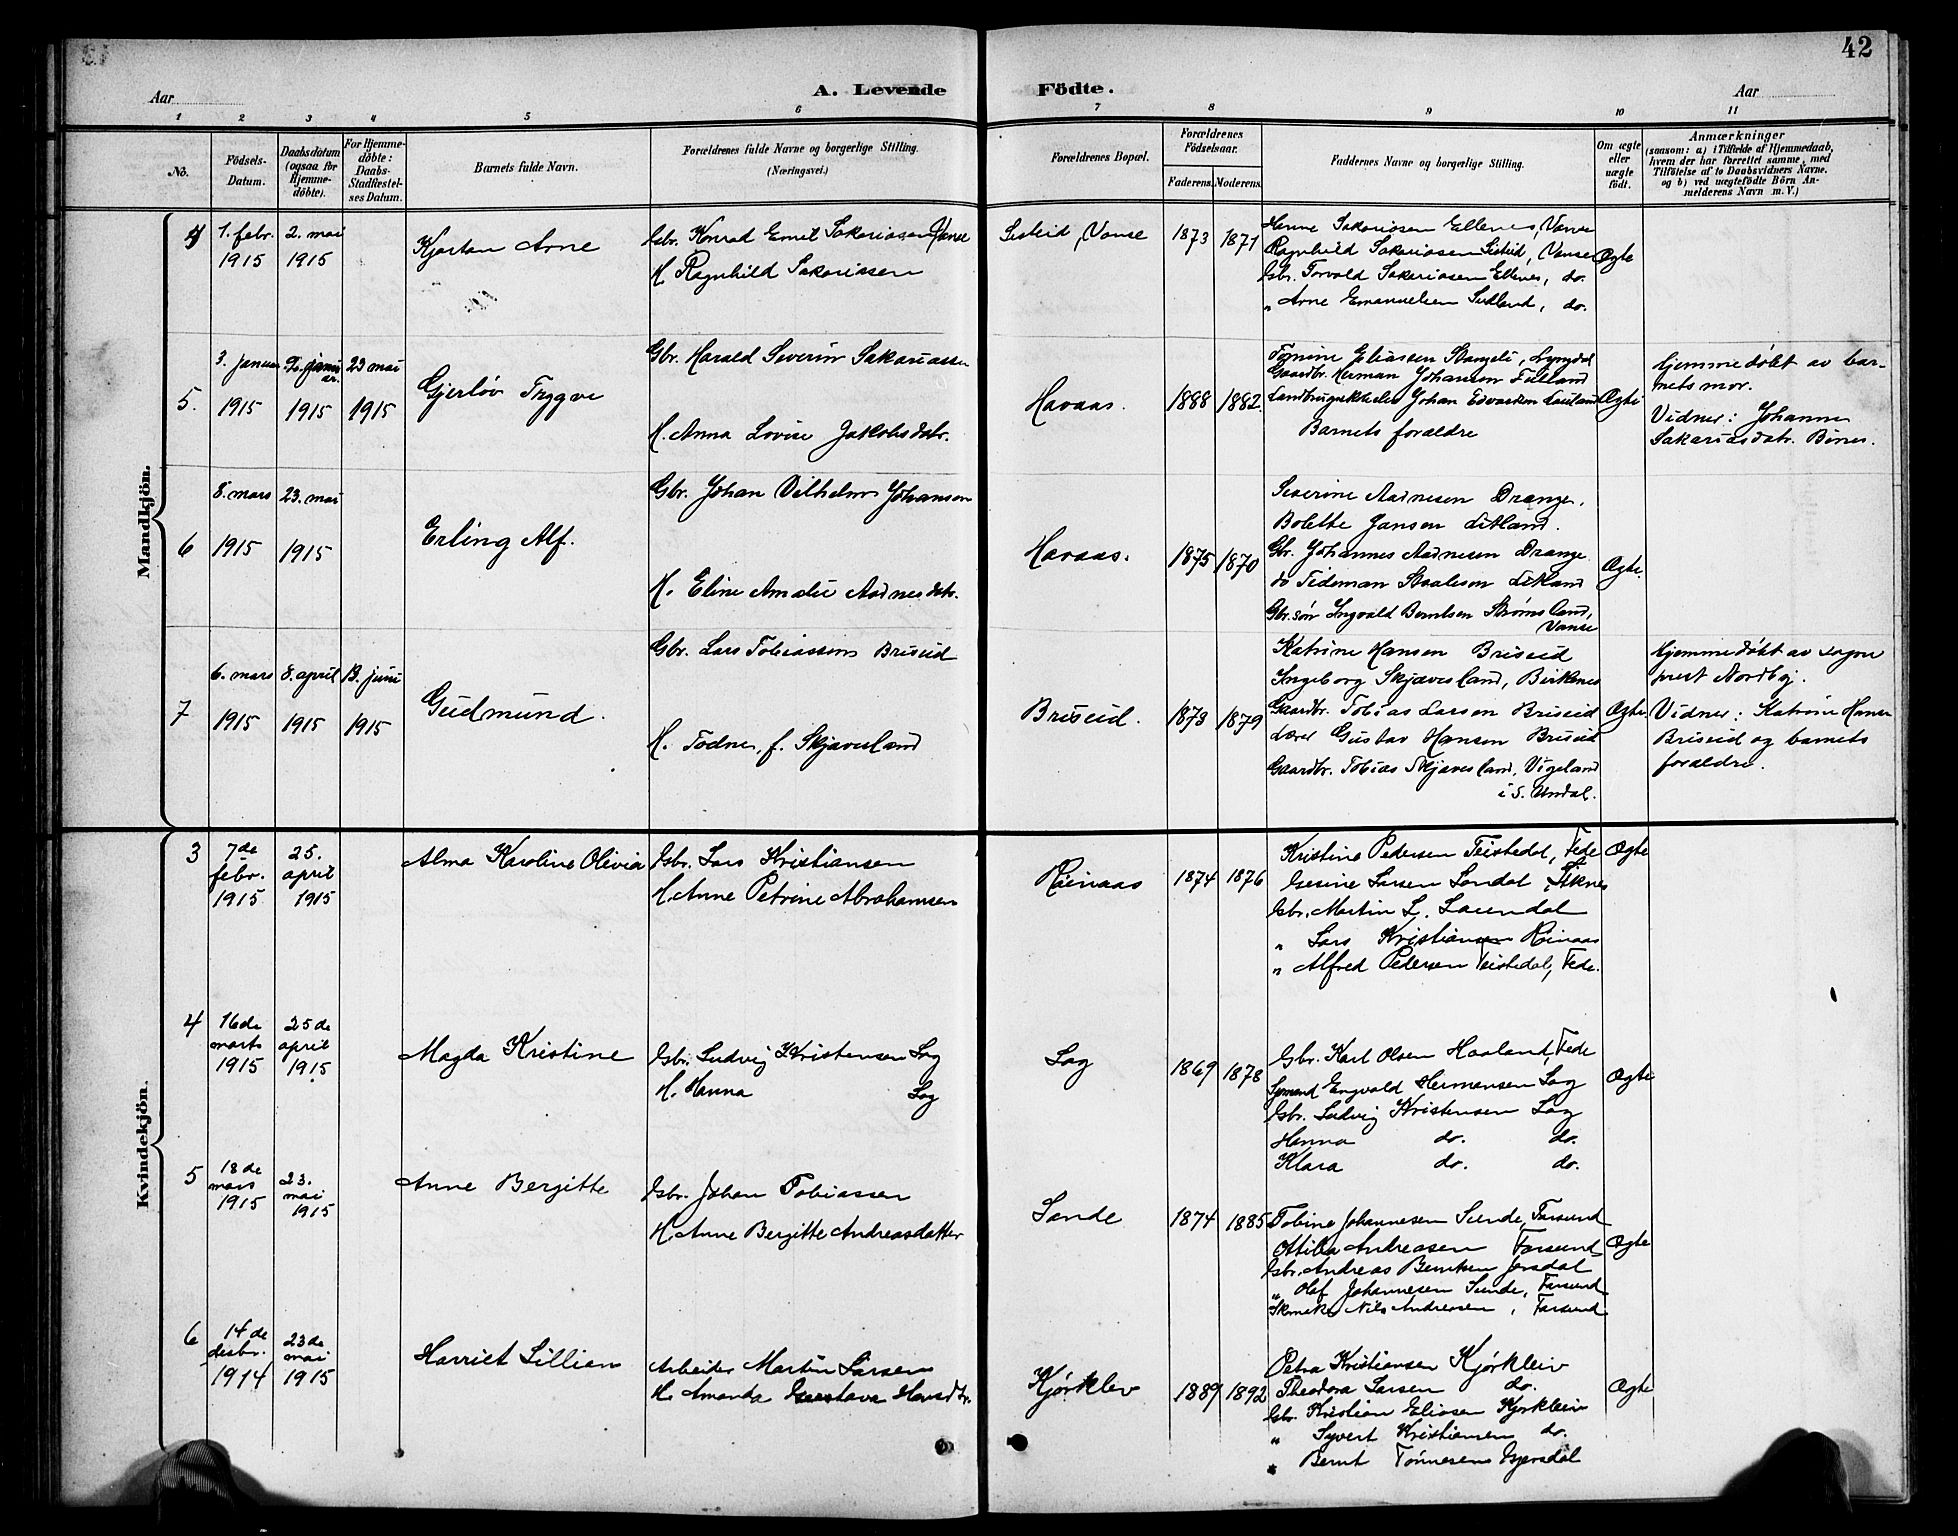 42
A. Levende Födte.
Aar
Aar
1 2 3 4 5 6 7 8 9 10 11
No.
Födsels-Datum.
Daabsdatum (ogsaa for Hjemme-döbte).
For Hjemme-döbte: Daabs-Stadfestel-ses Datum.
Barnets fulde Navn.
Forældrenes fulde Navne og borgerlige Stilling.
(Næringsvei.)
Forældrenes Bopæl.
Forældrenes Födselsaar.
Faderens. Moderens.
Faddernes Navne og borgerlige Stilling.
Om ægte eller uægte födt.
Anmærkninger
(saasom: a) i Tilfælde af Hjemmedaab, hvem der har forrettet samme, med Tilföielse af to Daabsvidners Navne. og b) ved uægtefödte Börn An-melderens Navn m. V.)
Mandkjön.
4
1. febr. 1915
2. mai 1915
Kjartan Arne
Gbr. Konrad Emil Sakariassen, Vanse
H. Ragnhild Sakariassen
Vanse
1873 1871
Hanne Sakariasen Ellenes, Vanse
Ragnhild Sakariasen, Vanse
Gbr. Torvald Sakariasen Ellenes, do.
" Arne Emanuelsen, do.
Ægte
5.
3. januar 1915
1915
23 mai 1915
Gjerløv Tryggve
Gbr. Harald Severin Sakariassen
H. Anna Lovise Jakobsdatr.
Havaas.
1888 1882
Eliassen Stangeli, Lyngdal
Gaardbr. Herman Johansen
Johan Edvardsen
Barnets forældre
Ægte
Hjemmedøbt av bar-
nets mor.
Vidner: Johanne
Sakariasdatr.
6
8. mars 1915
23. mai 1915
Erling Alf.
Gbr. Johan Vilhelm Johansen
H. Eline Amalie Aadnesdatr.
Havaas.
1875 1870
Severine Aadnesen Drange.
Bolette Jansen Litland.
Gbr. Johannes Aadnesen Drange
do Tideman Staalesen Litland
Gbr. søn Ingvald Berntsen Strømsland,
Vanse
Ægte.
7
6. mars 1915
8. april 1915
13. juni 1915
Gudmund.
Gbr. Lars Tobiassen Briseid
H. Todne, f. Skjævesland
Briseid.
1878 1879
Katrine Hansen Briseid
Ingeborg Skjævesland, Birkenes
Gaardbr. Tobias Larsen Briseid
Lærer Gustav Hansen Briseid
Gaardbr. Tobias Skjævesland, Vigeland
i S. Undal.
Ægte
Hjemmedøbt av sogne
prest Nordbø.
Vidner: Katrine Hansen
Briseid og barnets
forældre.
Kvindekjön.
3
7de febr. 1915
25. april 1915
Alma Karoline Olivia
Gbr. Lars Kristiansen
H. Anne Petrine Abrahamsen
Røinaas
1874 1876
Kristine Pedersen Teistedal, Fede
Gesine Larsen
Gbr. Martin L. Lauendal
" Lars Kristiansen Røinaas
" Alfred Pedersen Teistedal, Fede.
Ægte
4
16de marts 1915
25 de april 1915
Magda Kristine
Gbr. Ludvig Kristensen Log
H. Hanna Log
Log
1869 1878
Gbr. Karl Olsen Haaland, Fede
Sømand Engvald Hermansen Log
Gbr. Ludvig Kristensen Log
Hanna do. do.
Klara do. do.
Ægte
5
18 de mars 1915
23. mai 1915
Anne Bergitte
Gbr. Johan Tobiassen
H. Anne Bergitte Andreasdatter
Sande
1874 1885
Tobine Johannesen Sunde, Farsund
Ottilia Andreasen Farsund
Gbr. Andreas Berntsen Jersdal
" Olaf Johannesen Sunde, Farsund
Skomaker Nils Andreasen, Farsund
Ægte
6
14 de desbr. 1914
23 de mai 1915
Harriet Lillian
Arbeider Martin Larsen
H. Amanda Gustava Hansdtr.
Kjørklev
1889 1892
Petra Kristiansen Kjørkleiv
Theodora Larsen do.
Gbr. Kristian Eliasen Kjørkleiv
" Syvert Kristiansen do.
" Bernt Tønnesen Gjersdal
Ægte